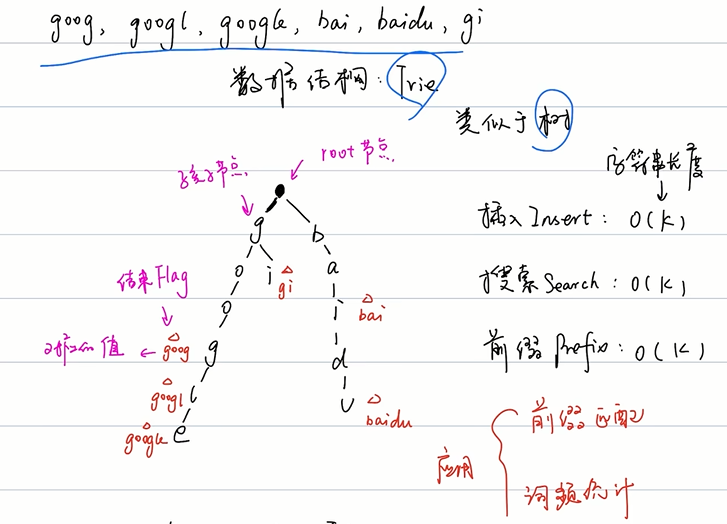 goog, googl, google, bai, baidu, gi
数据结构: Trie
类似于 树
字符串长度
root 节点
孩子节点
插入 Insert: O(K)
g b
o i a
gi
结束 Flag
搜索 Search: O(K)
o i
bai
对应的值
goog
g d
前缀 Prefix: O(K)
googl l
u
baidu
google e
应用
前缀匹配
词频统计